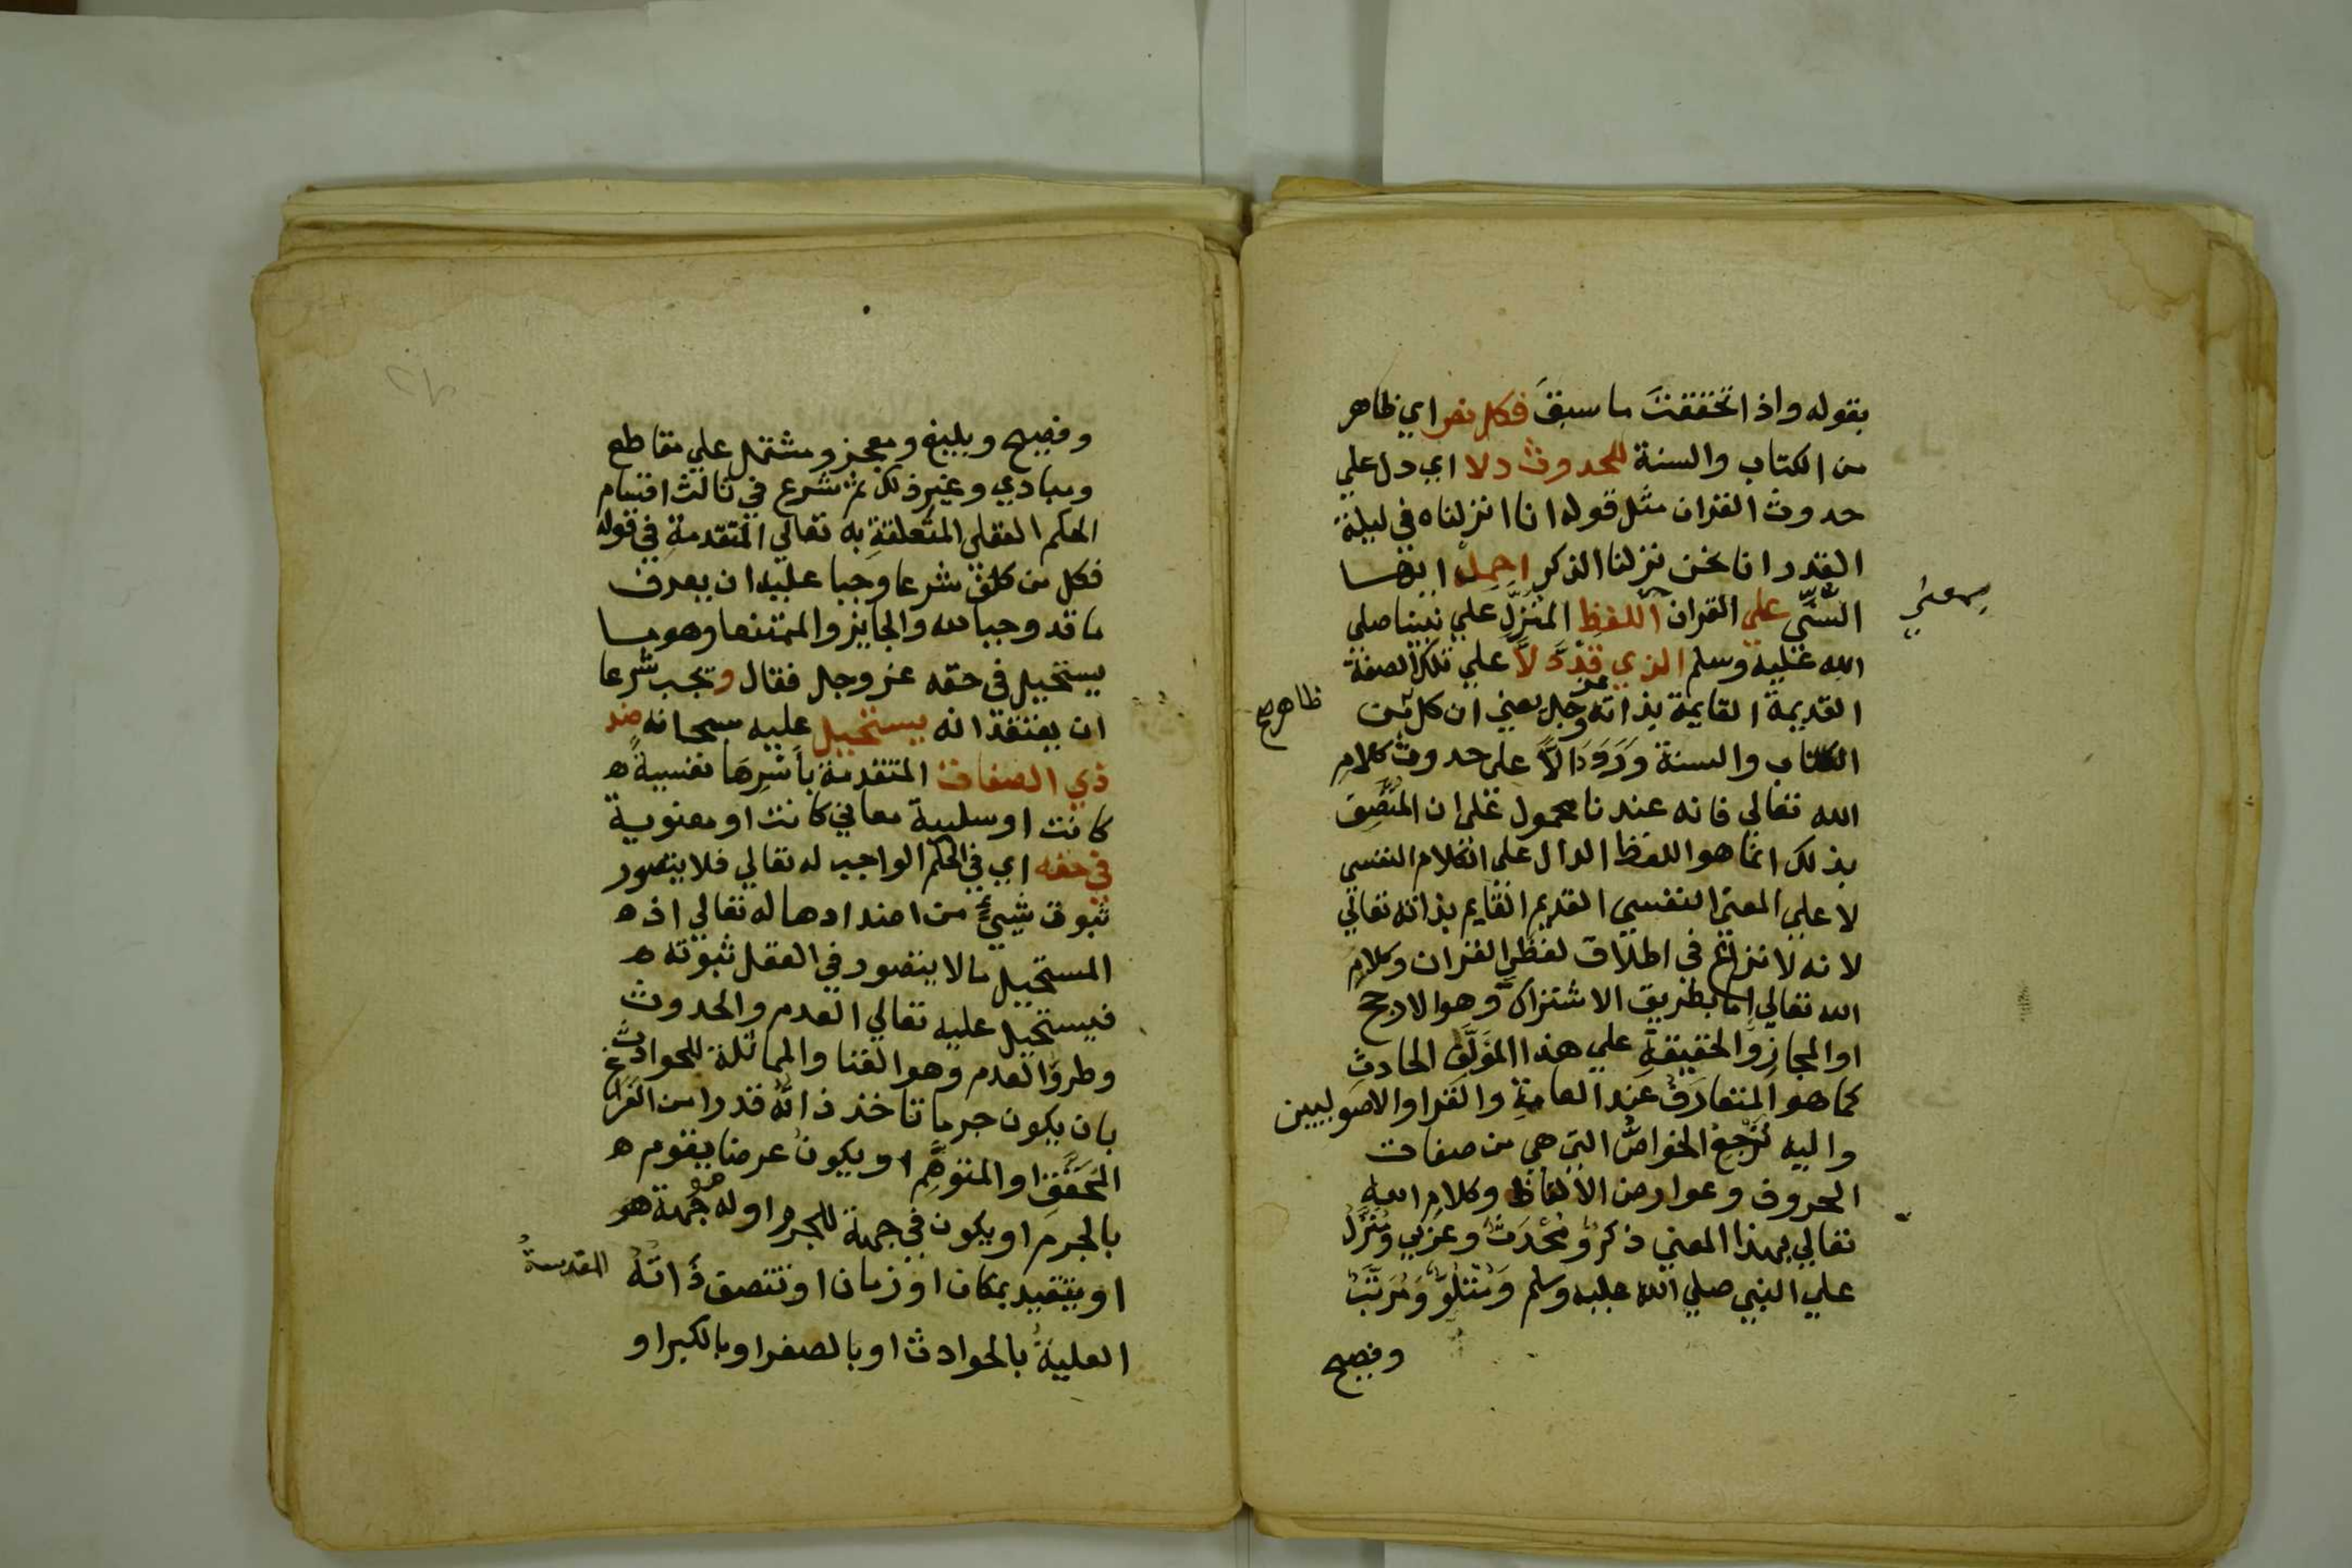 بقوله واذا تحققت ما سبقَ فكل نص اي ظاهر
من الكتاب والسنة للحدوث دلا اي دل علي
حدوث القران مثل قوله انا انزلناه في ليلة
القدر انا نحن نزلنا الذكر احمل ايها
السُّنِّي علي القران اللفظِ المنَزَّلِ علي نبينا صلي
معني
الله عليه وسلم الذي قد دَلَّا علي تلك الصفة
القديمة القايمة بذاته عز وجل يعني ان كل من
ظاهر صح
الكتاب والسنة وَرَدَ دالاً علي حدوث كلامِ
الله تعالي فانه عندنا محمول علي ان المتَّصِفَ
بذلك انما هو اللفظ الدال علي الكلام النفسي
لا علي المعني النفسي القديم القايم بذاته تعالي
لانه لا نزاع في اطلاق لفظَي القران وكلامِ
الله تعالي اما بطريق الاشتراك وهو الارجح
او المجازِ والحقيقةِ علي هذا المؤلَّفِ الحادثِ
كما هو المتعارَفُ عند العامةِ والقرا والاصوليين
واليه تَرْجِعُ الخواصُّ التي هي من صفات
الحروف وعوارض الالفاظ وكلام الله
تعالي بهذا المعني ذكرٌ ومُحْدَثٌ وعَرَبي ومُنَزَّلٌ
علي النبي صلي الله عليه وسلم وَمَتْلُوٌّ وَمُرَتَّبٌ
وفصيح
وفصيح وبليغ ومعجز ومشتمل علي مقاطع
ومبادي وغير ذلك ثم شرع في ثالث اقسام
الحكم العقلي المتعلقةِ به تعالي المتقدمةِ في قوله
فكل من كلف شرعا وجبا عليه ان يعرف
ما قد وجبا لله والجايز والممتنعا وهو ما
يستحيل في حقه عز وجل فقال ويجب شرعا
ان يعتقد انه يستحيل عليه سبحانه ضد
ذي الصفات المتقدمة باَسْرِهَا نفسيةً ه
كانت او سلبية معاني كانت او معنوية
في حقه اي في الحكم الواجب له تعالي فلا يتصور
ثبوت شيءٍ من اضدادها له تعالي اذ ه
المستحيل ما لا يتصور في العقل ثبوته ه
فيستحيل عليه تعالي العدم والحدوث
وطروُّ العدم وهو الفنا والمماثلة للحوادث
بان يكون جرما تاخذ ذاته قدرا من الفراغ
المُحَقَّقِ او المتوهَّم او يكون عرضا يقوم ه
بالجرم او يكون في جهة للجرم او له هو جهة
او يتقيد بمكان او زمان او تتصف ذاتُهُ المقدسةُ
العليةُ بالحوادث او بالصغر او بالكبر او